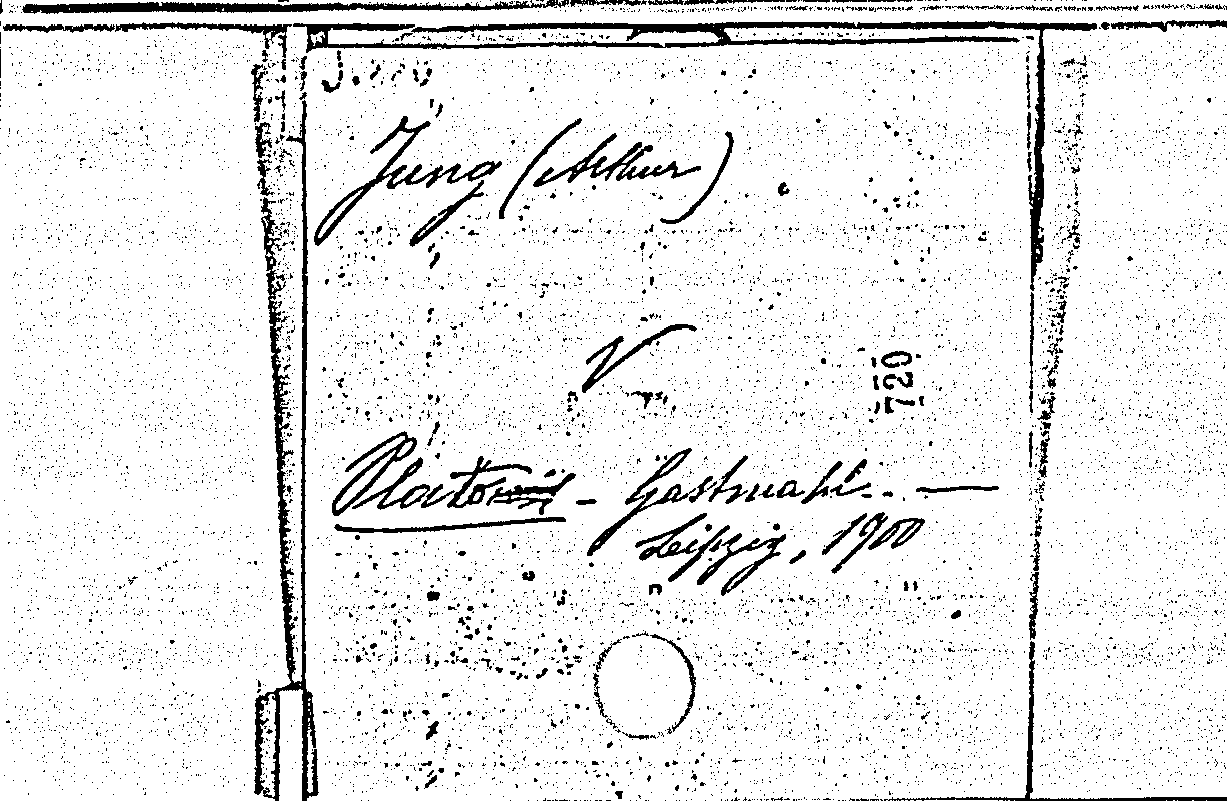 Jung (Arthur)
V
720
Plato - Gastmahl. . —
Leipzig, 1900